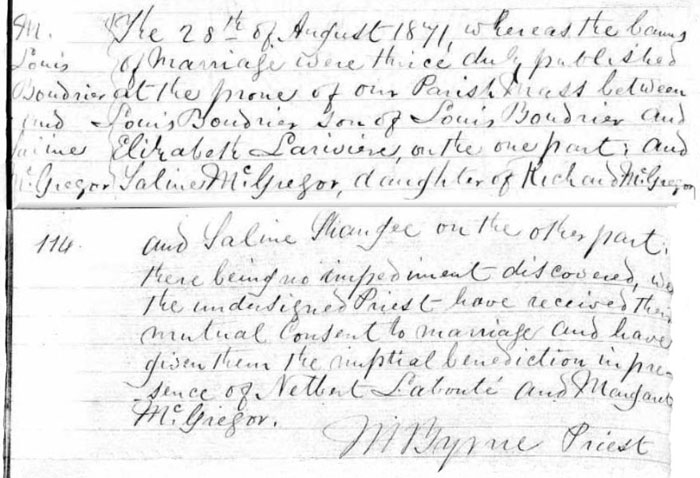 M.
Louis
Boudrier
and
Saline
McGregor
The 28th of August 1871, whereas the banns
of marriage were thrice duly published
at the prone of our Parish Mass between
Louis Boudrier son of Louis Boudrier and
Elizabeth Lariviere, on the one part; and
Saline McGregor, daughter of Richard McGregor
114.
and Saline on the other part.
there being no impediment discovered, we
the undersigned Priest have received their
mutual Consent to marriage and have
given them the nuptial benediction in pre-
sence of Netbert Labonté and Margaret
McGregor.
M Byrne Priest